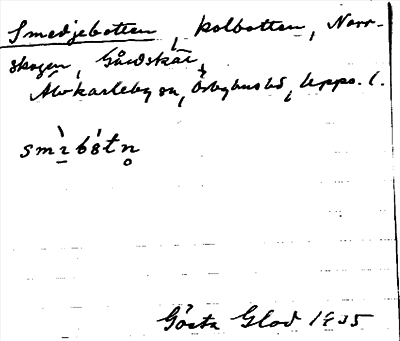 Smedjebotten, kolbotten, Norr-
skogen, Gårdskär,
Älvkarleby sn, Örbyhus hd, Upps. l.
smı̀bátn̥
Gösta Glad 1935